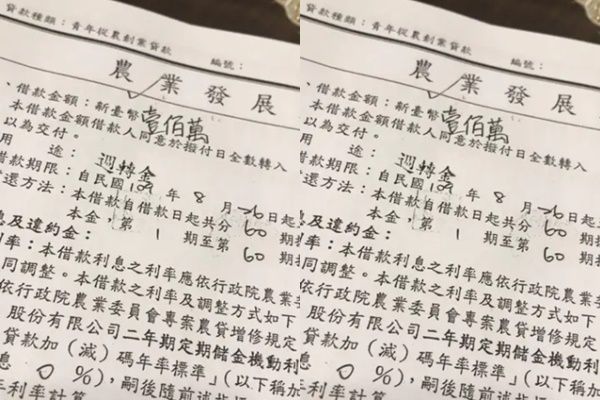 貸款種類：青年從農創業貸款 編號：
農業發展
、借款金額：新臺幣壹佰萬
本借款金額借款人同意於撥付日全數轉入
以為交付。
用 途：週轉金
借款期限：自民國 年 8 月 日起
償還方法：本借款自借款日起共分 60 期
本金，第 1 期至第 60 期
息及違約金：
利率：本借款利息之利率應依行政院農業委
同調整。本借款之利率及調整方式如下
依行政院農業委員會專案農貸增修規定
股份有限公司二年期定期儲金機動利
貸款加（減）碼年率標準」（以下稱加
息 0 %），嗣後隨前述指
年利率計算
貸款種類：青年從農創業貸款 編號：
農業發展
、借款金額：新臺幣壹佰萬
本借款金額借款人同意於撥付日全數轉入
以為交付。
用 途：週轉金
借款期限：自民國 年 8 月 日起
償還方法：本借款自借款日起共分 60 期
本金，第 1 期至第 60 期
息及違約金：
利率：本借款利息之利率應依行政院農業委
同調整。本借款之利率及調整方式如下
依行政院農業委員會專案農貸增修規定
股份有限公司二年期定期儲金機動利
貸款加（減）碼年率標準」（以下稱加
息 0 %），嗣後隨前述指
年利率計算